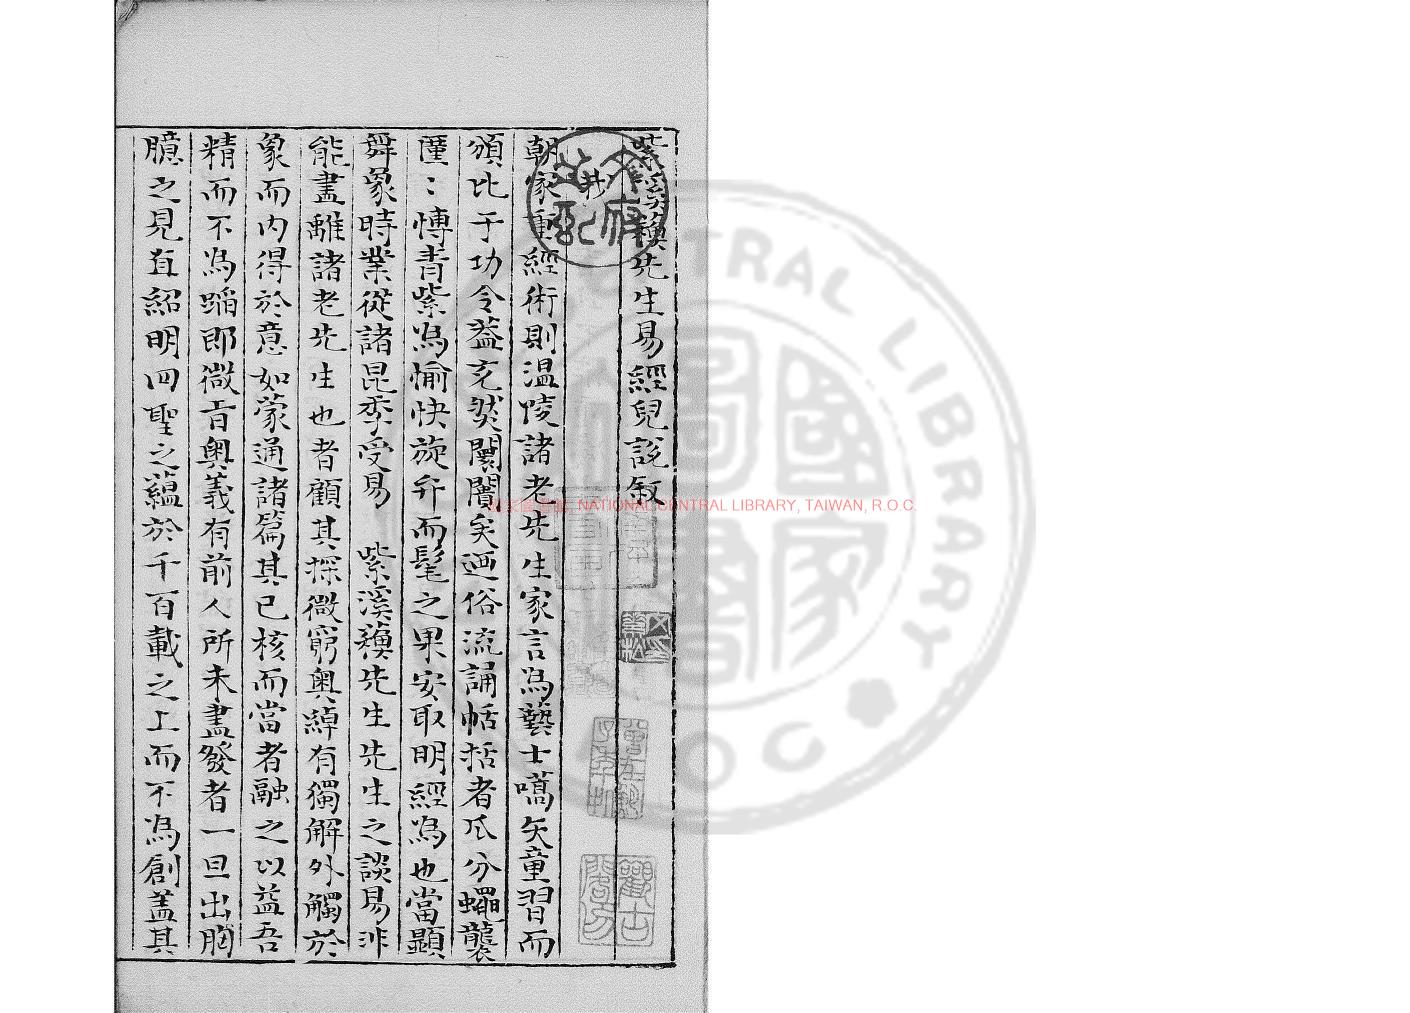 紫溪蘓先生易經兒說叙
我
朝家重經術則温陵諸老先生家言為藝士嚆矢童習而
頒比于功令葢充然闤闠矣迺俗流誦帖括者瓜分蠅襲
僅僅慱青紫為愉快旋弁而髦之果安取明經為也當顯
舞象時業從諸昆季受易 紫溪蘓先生先生之談易非
能畫離諸老先生也者顧其探微窮奧綽有獨解外觸於
象而内得於意如蒙通諸篇其已核而當者融之以益吾
精而不為蹈即微㫖奧義有前人所未盡發者一旦出胸
臆之見直紹明四聖之蘊於千百載之上而不為創盖其
國家圖書館, NATIONAL CENTRAL LIBRARY, TAIWAN, R.O.C.
CENTRAL LIBRARY